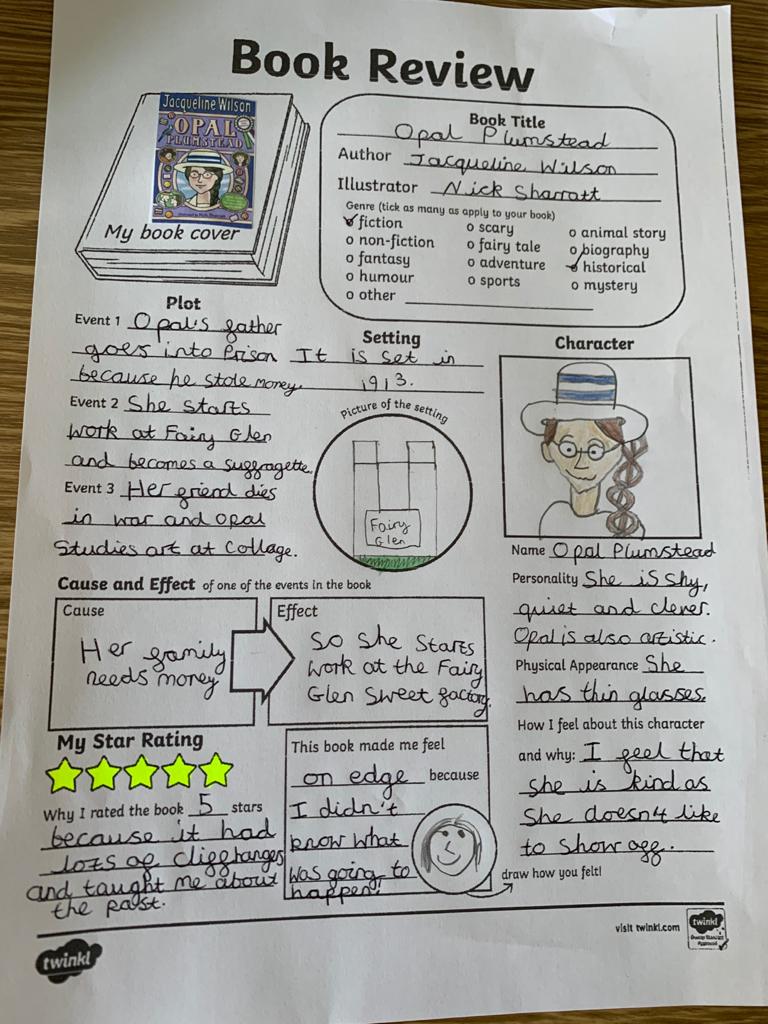 Book Review
Jacqueline Wilson
OPAL
PLUMSTEAD
My book cover
Book Title
Opal Plumstead
Author Jacqueline Wilson
Illustrator Nick Sharratt
Genre (tick as many as apply to your book)
fiction
o non-fiction
o fantasy
o humour
o other
o scary
o fairy tale
o adventure
o sports
o animal story
o biography
historical
o mystery
Plot
Event 1 Opal's father
goes into Prison
because he stole money.
Event 2 She starts
work at Fairy Glen
and becomes a suffragette.
Event 3 Her friend dies
in war and Opal
Studies art at Collage.
Setting
It is set in
1913.
Picture of the setting
Fairy
Glen
Character
Name Opal Plumstead
Personality She is shy,
quiet and clever.
Opal is also artistic.
Physical Appearance She
has thin glasses.
How I feel about this character
and why: I feel that
she is kind as
She doesn't like
to show off.
Cause and Effect of one of the events in the book
Cause
Her family
needs money
Effect
So she starts
work at the Fairy
Glen Sweet factory.
My Star Rating
Why I rated the book 5 stars
because it had
lots of cliffhangers
and taught me about
the past.
This book made me feel
on edge because
I didn't
know what
was going to
happen!
draw how you felt!
twinkl
visit twinkl.com
twinkl